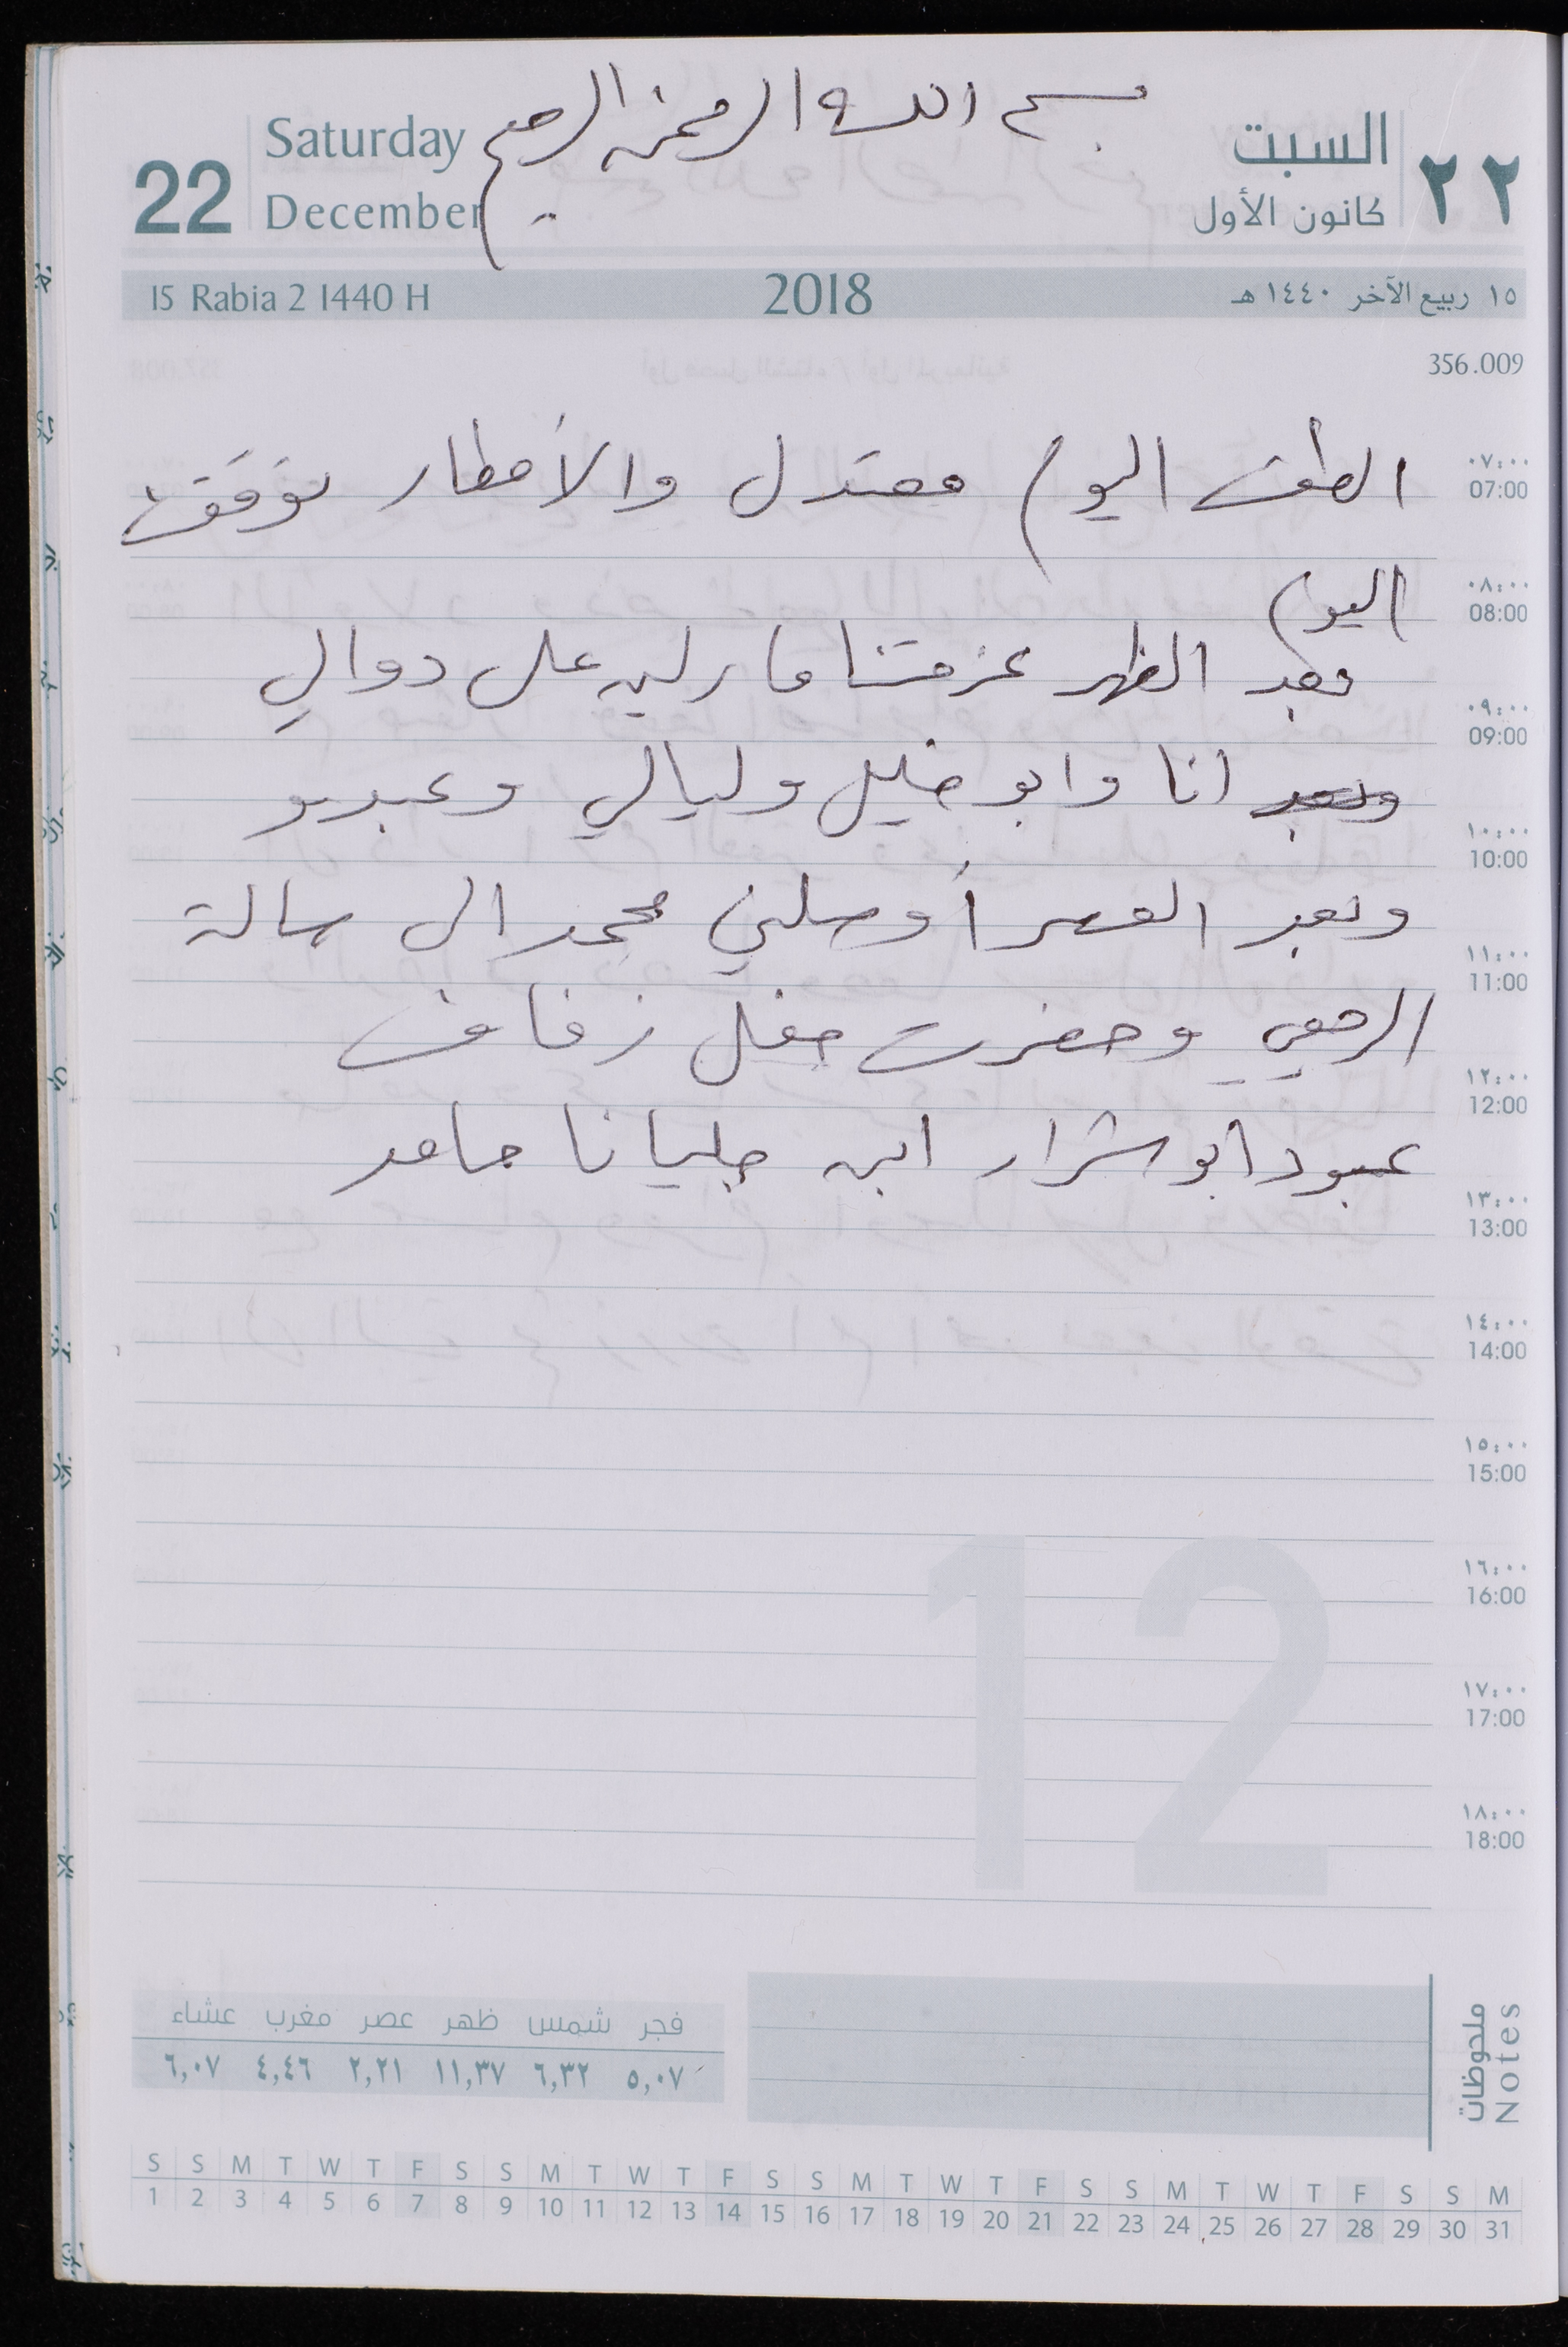 بسم الله الرحمن الرحيم
22
Saturday
December
السبت
كانون الأول
٢٢
15 Rabia 2 1440 H
2018
١٥ ربيع الآخر ١٤٤٠ هـ
356.009
الطقس اليوم معتدل والأمطار توقفت
اليوم
بعد الظهر عزمتنا مارلين على دوالي
وبعد انا وابو خليل وليالي وعبدو
وبعد العصر أوصلني محمد الى سالة
الرحبي وحضرت حفل زفاف
عبود ابو شرار ابن جليانا حامد
٠٧:٠٠
07:00
٠٨:٠٠
08:00
٠٩:٠٠
09:00
١٠:٠٠
10:00
١١:٠٠
11:00
١٢:٠٠
12:00
١٣:٠٠
13:00
١٤:٠٠
14:00
١٥:٠٠
15:00
١٦:٠٠
16:00
١٧:٠٠
17:00
١٨:٠٠
18:00
12
ملحوظات
Notes
فجر شمس ظهر عصر مغرب عشاء
٥,٠٧ ٦,٣٢ ١١,٣٧ ٢,٢١ ٤,٤٦ ٦,٠٧
S S M T W T F S S M T W T F S S M T W T F S S M T W T F S S M
1 2 3 4 5 6 7 8 9 10 11 12 13 14 15 16 17 18 19 20 21 22 23 24 25 26 27 28 29 30 31